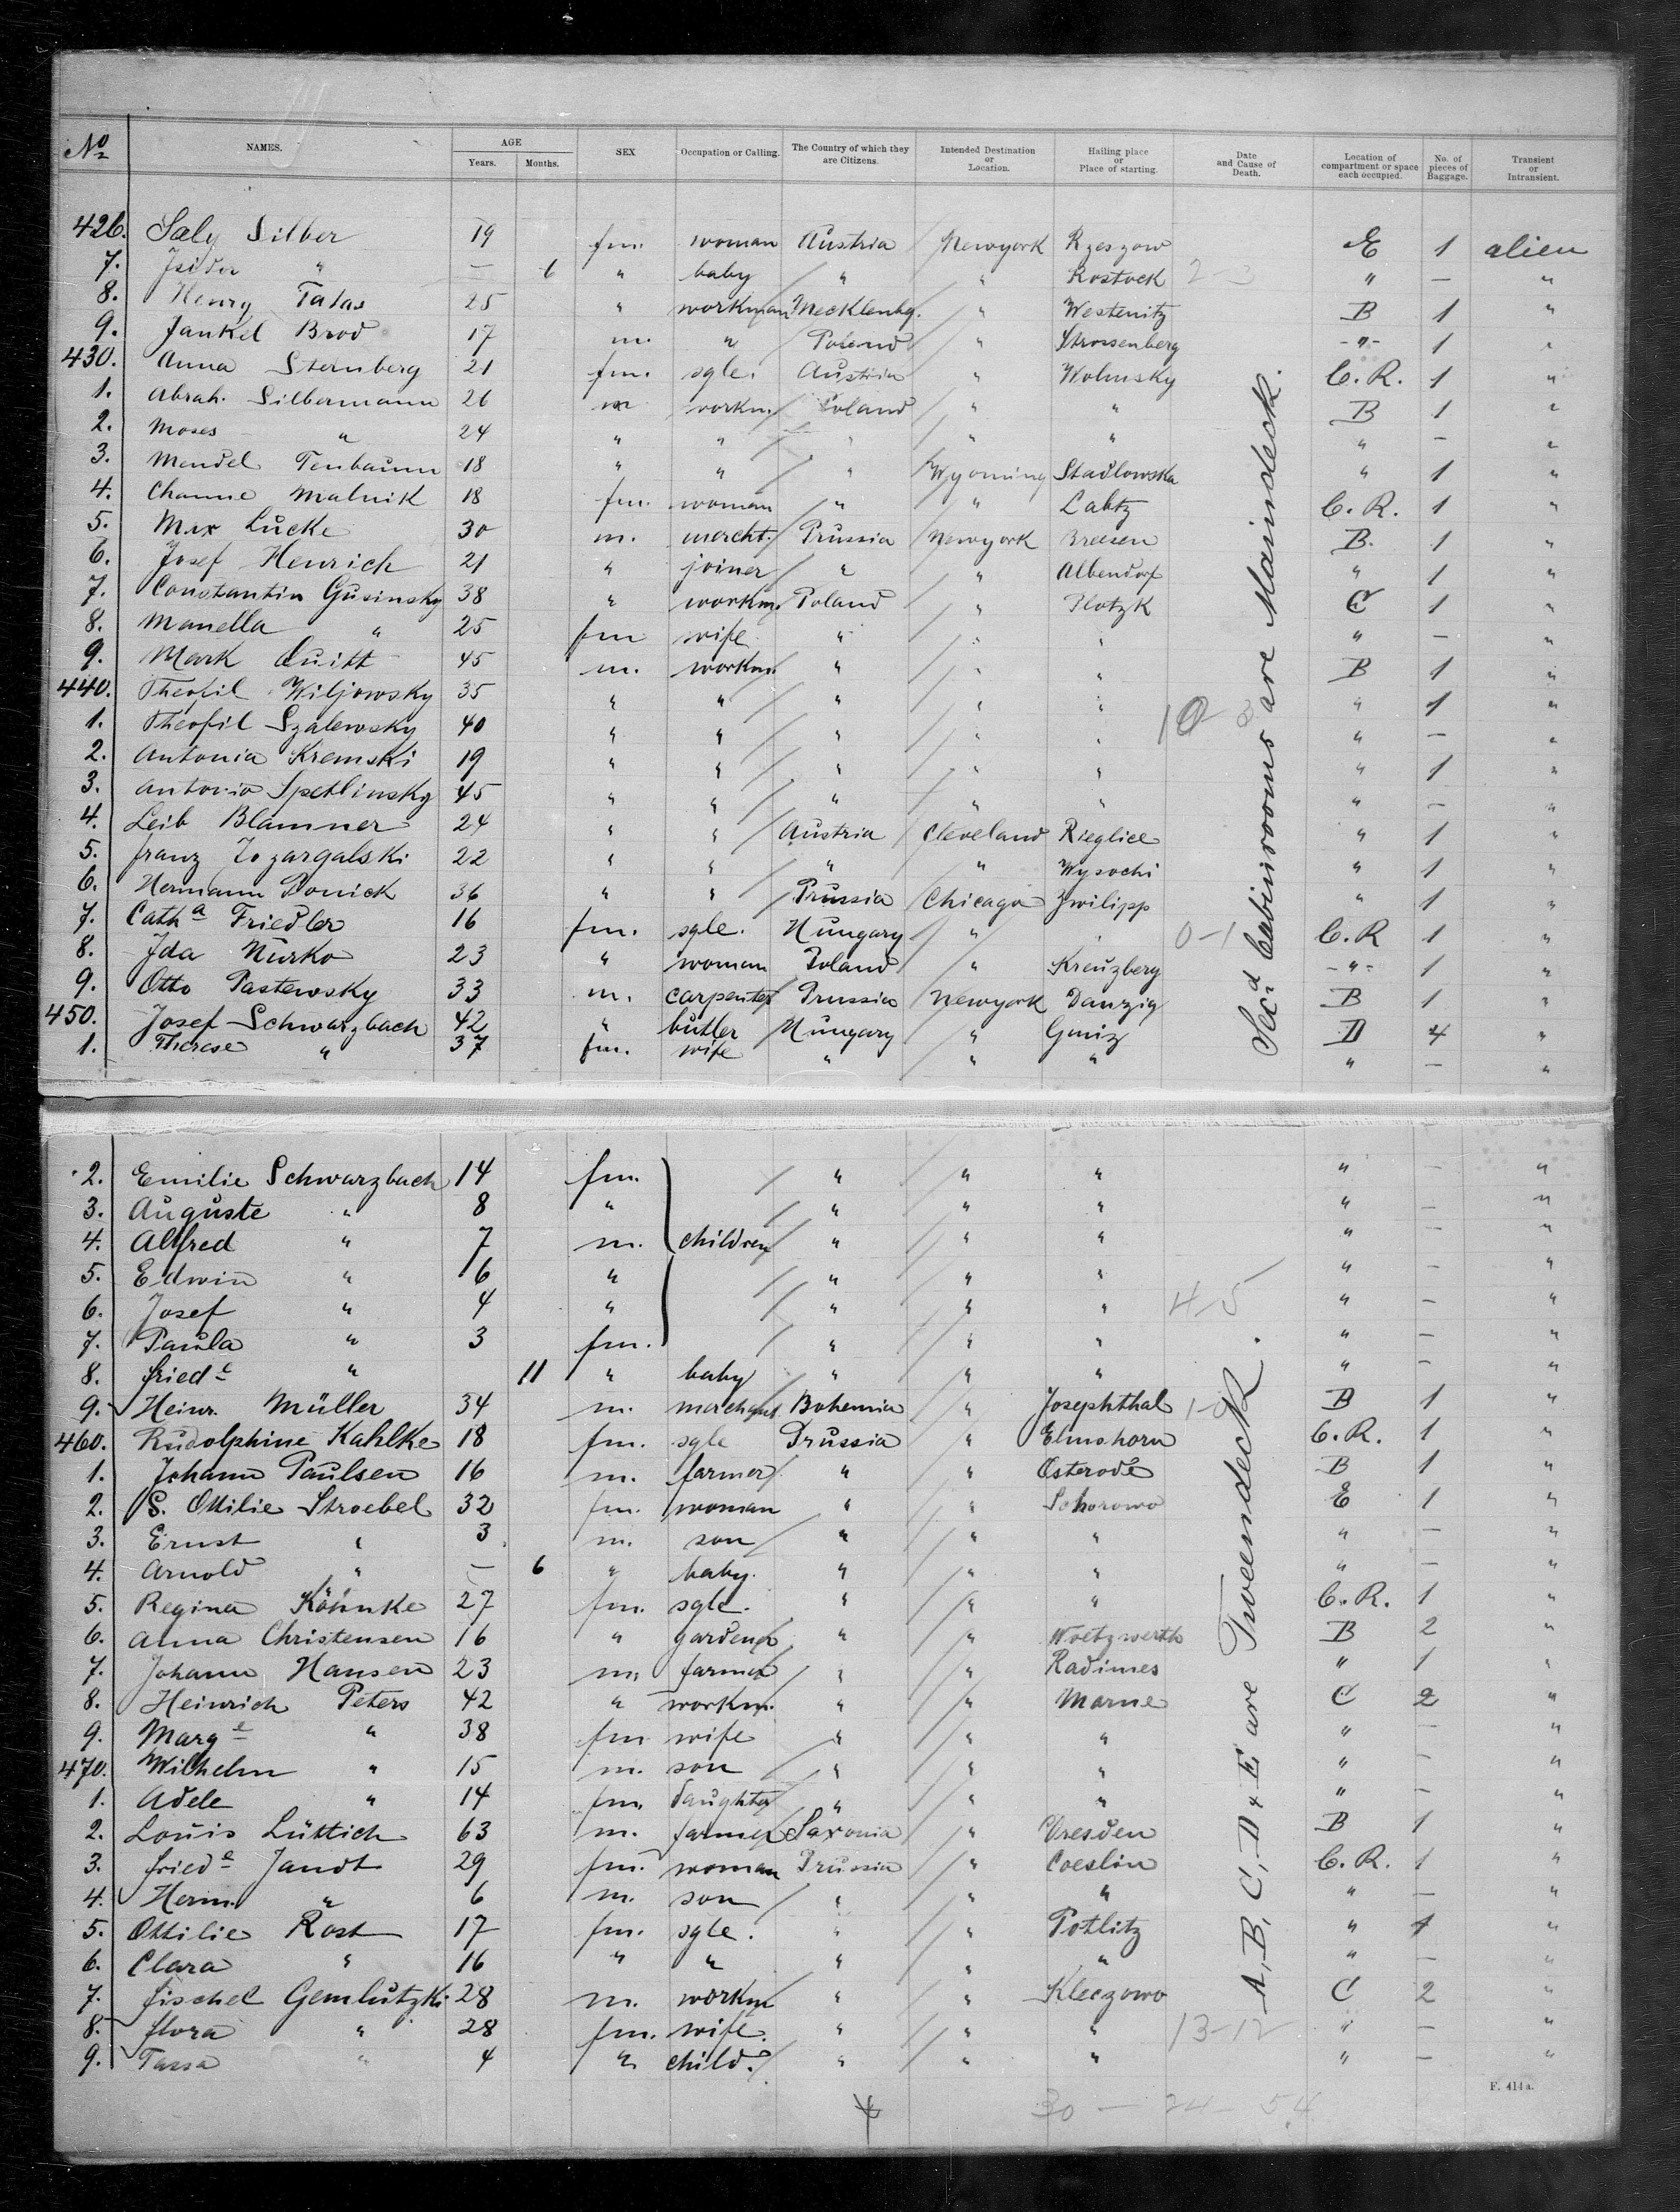 No NAMES. AGE Years. Months. SEX Occupation or Calling. The Country of which they are Citizens. Intended Destination or Location. Hailing place or Place of starting. Date and Cause of Death. Location of compartment or space each occupied. No. of pieces of Baggage. Transient or Intransient.
426. Saly Silber 19 fm. woman Austria Newyork Rzeszow E 1 alien
7. Isidor " — 6 " baby " " Rostock 2-3 " — "
8. Henry Talas 25 " workman Mecklenbg. " Westenitz B 1 "
9. Jankel Brod 17 m. " Poland " Strossenberg -"- 1 "
430. Anna Sternberg 21 fm. sgle. Austria " Wolmsky C.R. 1 "
1. Abrah. Silbermann 26 m workm. Poland " " B 1 "
2. Moses " 24 " " " " " " — "
3. Mendel Tenbaum 18 " " " Wyoming Stadlowska " 1 "
4. Channe Malnik 18 fm. woman " " Labtz C.R. 1 "
5. Max Lücke 30 m. mercht. Prussia Newyork Breesen B. 1 "
6. Josef Henrich 21 " joiner " " Albendorf " 1 "
7. Constantin Gusinsky 38 " workm. Poland " Plotzk C 1 "
8. Manella " 25 fm wife " " " " — "
9. Mark Quitt 45 m. workm. " " " B 1 "
440. Theofil Wiljowsky 35 " " " " " " 1 "
1. Theofil Szalewsky 40 " " " " " " — "
2. Antonia Kremski 19 " " " " " " 1 "
3. Antonio Spetlinsky 45 " " " " " " — "
4. Leib Blamner 24 " " Austria Cleveland Rieglice " 1 "
5. Franz Zozargalski 22 " " " " Wysochi " 1 "
6. Hermann Ponick 36 " " Prussia Chicago Zwilipp " 1 "
7. Catha Friedler 16 fm. sgle. Hungary " " 0-1 C.R 1 "
8. Ida Nurko 23 " woman Poland " Kreuzberg -"- 1 "
9. Otto Pastewsky 33 m. carpenter Prussia Newyork Danzig B 1 "
450. Josef Schwarzbach 42 " butler Hungary " Gmiz D 4 "
1. Therese " 37 fm. wife " " " " — "
Secd Cabinrooms are Maindeck.
2. Emilie Schwarzbach 14 fm. " " " " — "
3. Auguste " 8 " " " " " — "
4. Alfred " 7 m. children " " " " — "
5. Edwin " 6 " " " " " — "
6. Josef " 4 " " " " 4/5 " — "
7. Paula " 3 fm. " " " " — "
8. Friede " 11 " baby " " " " — "
9. Heinr. Müller 34 m. merchant Bohemia " Josephthal 1-0 B 1 "
460. Rudolphine Kahlke 18 fm. sgle Prussia " Elmshorn C.R. 1 "
1. Johann Paulsen 16 m. farmer " " Osterode B 1 "
2. S. Ottilie Stroebel 32 fm. woman " " Schorowo E 1 "
3. Ernst " 3 m. son " " " " — "
4. Arnold " — 6 " baby. " " " " — "
5. Regina Köhnke 27 fm. sgle. " " " C.R. 1 "
6. Anna Christensen 16 " gardener " " Woetzwerth B 2 "
7. Johann Hansen 23 m. farmer " " Radimes " 1 "
8. Heinrich Peters 42 " workm. " " Marne C 2 "
9. Marge " 38 fm wife " " " " — "
470. Wilhelm " 15 m. son " " " " — "
1. Adele " 14 fm. daughter " " " " — "
2. Louis Lüttich 63 m. farmer Saxonia " Dresden B 1 "
3. Friede Jandt 29 fm. woman Prussia " Coeslin C.R. 1 "
4. Herm. " 6 m. son " " " " — "
5. Ottilie Rost 17 fm. sgle. " " Potlitz " 1 "
6. Clara " 16 " " " " " " — "
7. Fischel Gemlutzki 28 m. workm " " Kleczowo C 2 "
8. Flora " 28 fm. wife. " " " 13-12 " — "
9. Tassa " 4 " child. " " " " — "
A, B, C, D & E are Tweendeck.
F. 414a.
30 — 24 — 54